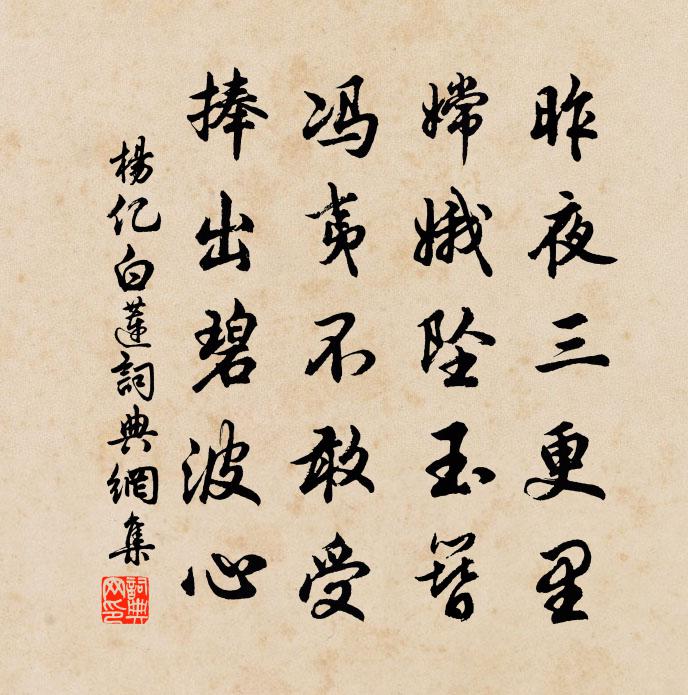 昨夜三更里
嫦娥坠玉簪
冯夷不敢受
捧出碧波心
楊亿白蓮詞典網集
詞典网印